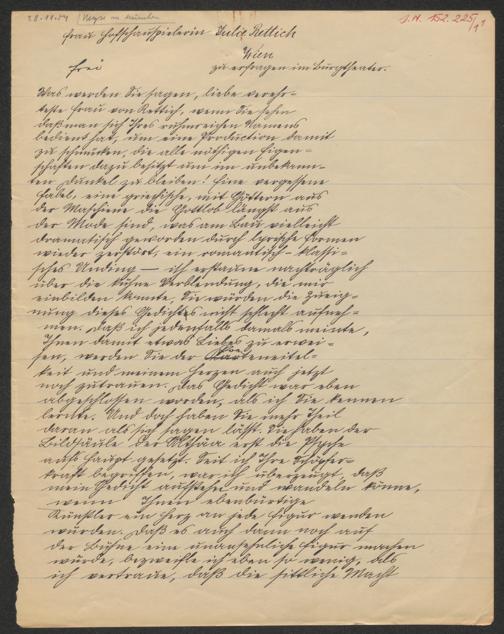 28.11.54 Heyse an
I.N. 152.225/1
Frau Hofschauspielerin Julie Rettich
Wien
frei zu erfragen im Burgtheater.
Was werden Sie sagen, liebe verehr-
teste Frau von Rettich, wenn Sie sehn
daß man sich Ihres ruhmreichen Namens
bedient hat, um eine Production damit
zu schmücken, die alle nöthigen Eigen-
schaften dazu besitzt um im unbekann-
ten Dunkel zu bleiben! Eine vergessene
Fabel, eine griechische, mit Göttern aus
der Maschine die Gottlob längst aus
der Mode sind, was am Bau vielleicht
dramatisch geworden durch lyrische Formen
wieder zerstört, ein romantisch-klassi-
sches Unding — ich erstaune nachträglich
über die kühne Verblendung, die mir
einbilden konnte, Sie würden die Zueig-
nung dieses Gedichtes nicht schlecht aufneh-
men. Daß ich jedenfalls damals meinte,
Ihnen damit etwas Liebes zu erwei-
sen, werden Sie der
keit und meinem Herzen auch jetzt
noch zutrauen. Das Gedicht war eben
abgeschlossen worden, als ich Sie kennen
lernte. Und doch haben Sie mehr Theil
daran als sich sagen läßt. Sie haben der
Bildsäule der Althäa erst die Psyche
aufs Haupt gesetzt. Seit ich Ihre Schöpfer-
kraft begriffen, war ich überzeugt, daß
mein Gedicht aufstehe und wandeln könne,
wenn Ihnen ebenbürtige
Künstler ein Herz an jede Figur wenden
würden. Daß es auch dann noch auf
der Bühne eine unansehnliche Figur machen
würde, bezweifle ich eben so wenig, als
ich vertraue, daß die sittliche Macht